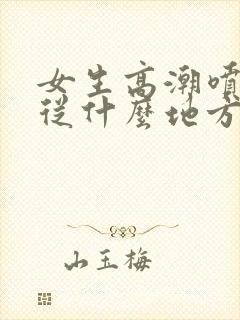 女生高潮噴
從什麼地方
山玉梅